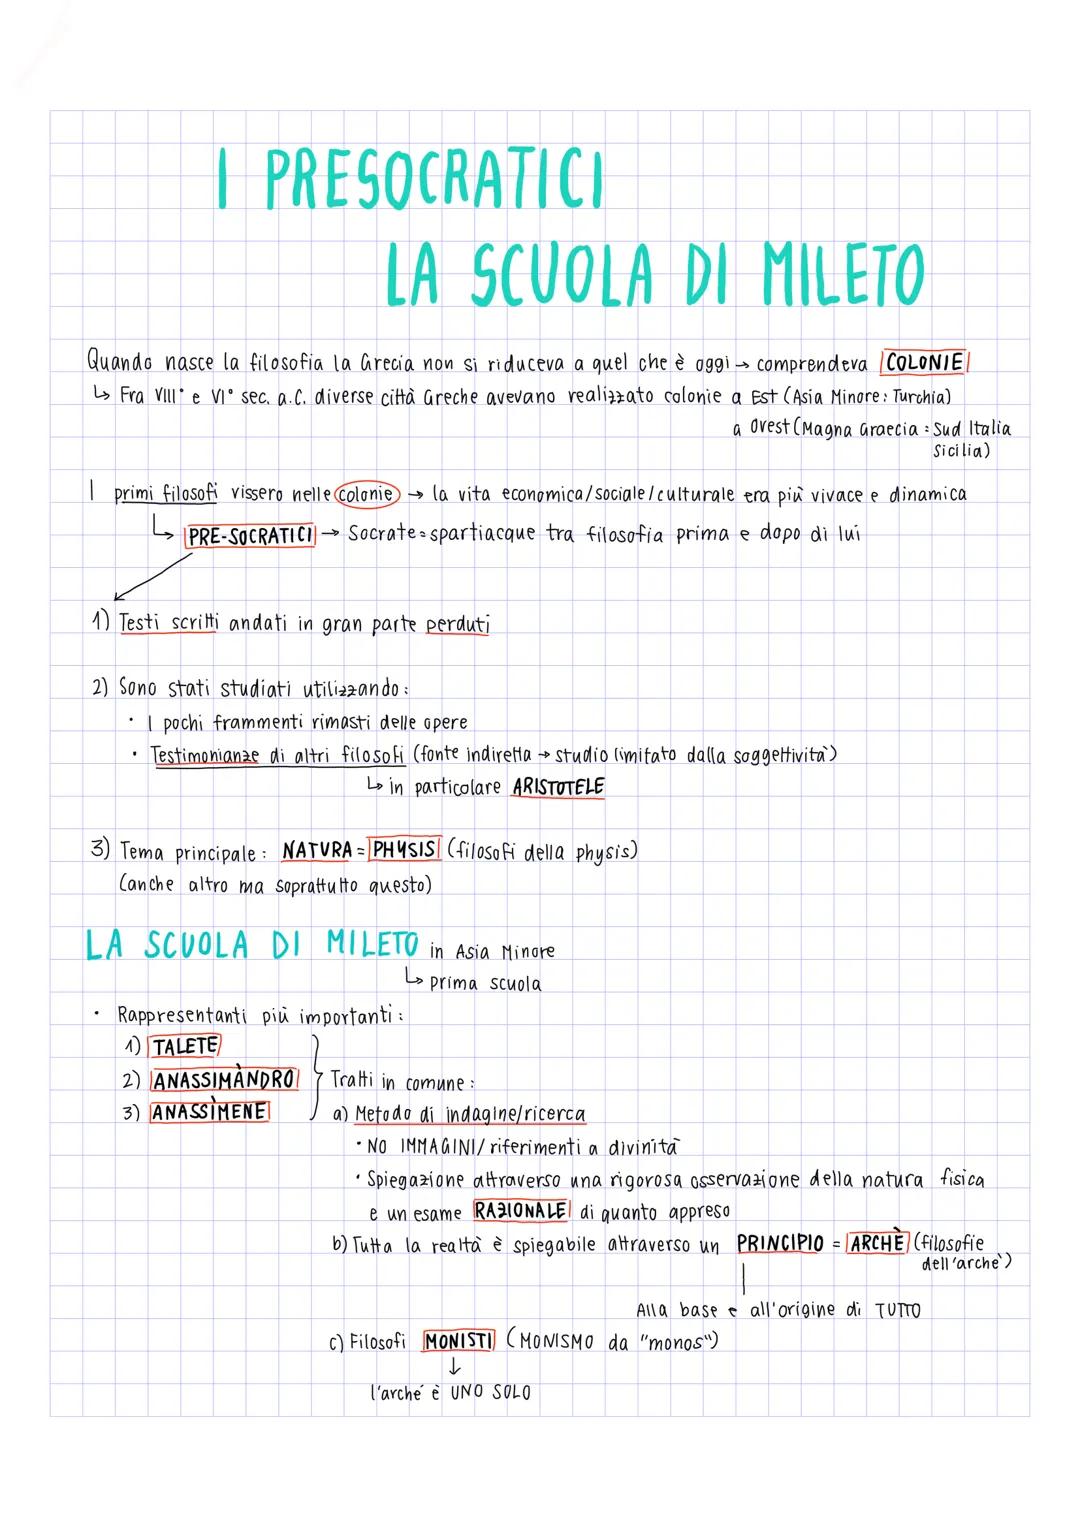 I PRESOCRATICI
LA SCUOLA DI MILETO
Quando nasce la filosofia la Grecia non si riduceva a quel che è oggi → comprendeva COLONIE
↳ Fra VIII° e VI° sec. a.C. diverse città Greche avevano realizzato colonie a Est (Asia Minore: Turchia)
a Ovest (Magna Graecia = Sud Italia
Sicilia)
I primi filosofi vissero nelle colonie → la vita economica/sociale/culturale era più vivace e dinamica
↳ PRE-SOCRATICI → Socrate = spartiacque tra filosofia prima e dopo di lui
1) Testi scritti andati in gran parte perduti
2) Sono stati studiati utilizzando:
• I pochi frammenti rimasti delle opere
• Testimonianze di altri filosofi (fonte indiretta → studio limitato dalla soggettività)
↳ in particolare ARISTOTELE
3) Tema principale: NATURA = PHYSIS (filosofi della physis)
(anche altro ma soprattutto questo)
LA SCUOLA DI MILETO in Asia Minore
↳ prima scuola
• Rappresentanti più importanti:
1) TALETE
2) ANASSIMÀNDRO
3) ANASSÌMENE
Tratti in comune:
a) Metodo di indagine/ricerca
• NO IMMAGINI/riferimenti a divinità
• Spiegazione attraverso una rigorosa osservazione della natura fisica
e un esame RAZIONALE di quanto appreso
b) Tutta la realtà è spiegabile attraverso un PRINCIPIO = ARCHÈ (filosofie
dell'archè)
Alla base e all'origine di TUTTO
c) Filosofi MONISTI (MONISMO da "monos")
↓
l'arché è UNO SOLO